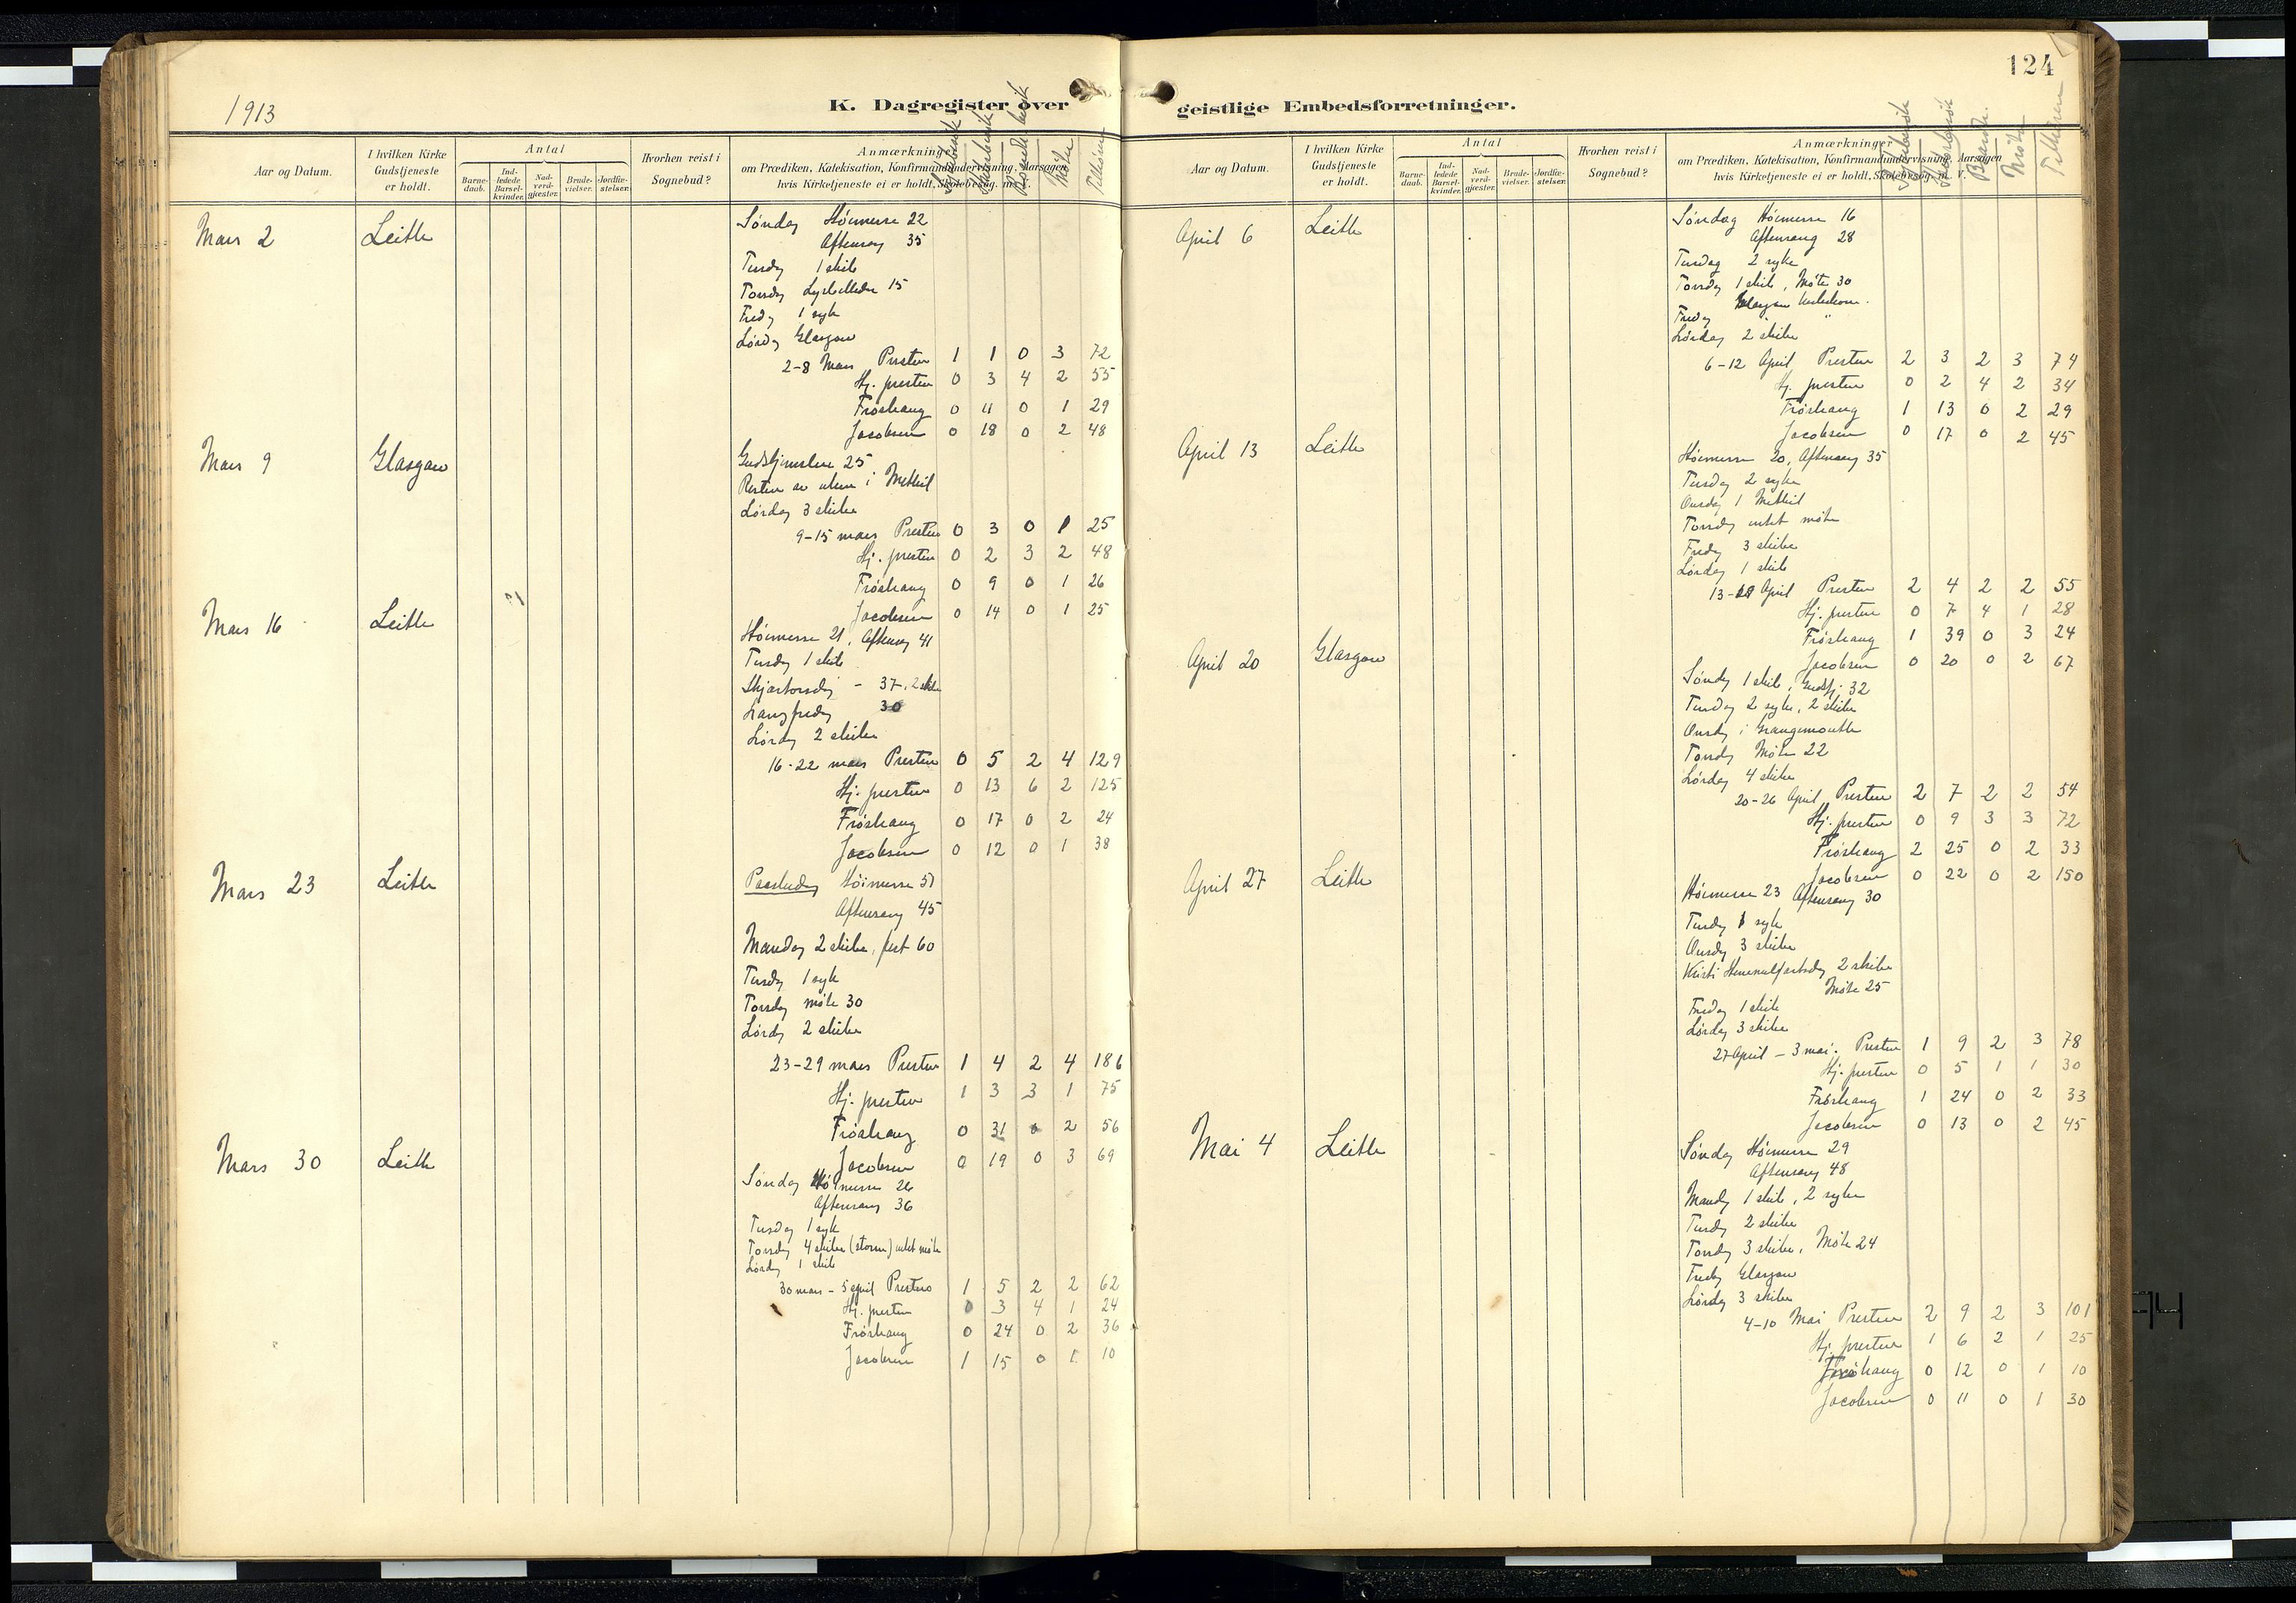 1913
K. Dagregister over
Aar og Datum.
I hvilken Kirke
Gudstjeneste
er holdt.
Antal
Barne-
daab.
Ind-
ledede
Barsel-
kvinder.
Nad-
verd-
gjæster.
Brude-
vielser.
Jordfæ-
stelser.
Hvorhen reist i
Sognebud?
Anmærkninger
om Prædiken, Katekisation, Konfirmandundervisning, Aarsagen,
hvis Kirketjeneste ei er holdt, Skolebesøg. m. v.
Møter
Tilhørere
Mars 2 Leith
Søndag Høimesse 22
Aftensang 35
Tirsdag 1 skib
Torsdag Lysbilleder 15
Fredag 1 syk
Lørdag Glasgow
2-8 Mars Presten 1 1 0 3 72
Hj. presten 0 3 4 2 55
Frøshaug 0 11 0 1 29
Jacobsen 0 18 0 2 48
Mars 9 Glasgow
Gudstjeneste 25
Resten av uken i Methil
Lørdag 3 skibe
9-15 mars Presten 0 3 0 1 25
Hj. presten 0 2 3 2 48
Frøshaug 0 9 0 1 26
Jacobsen 0 14 0 1 25
Mars 16 Leith
Høimesse 21, Aftensang 41
Tirsdag 1 skib
Skjærtorsdag - 37, 2 skibe
Langfredag 30
Lørdag 2 skibe
16-22 mars Presten 0 5 2 4 129
Hj. presten 0 13 6 2 125
Frøshaug 0 17 0 2 24
Jacobsen 0 12 0 1 38
Mars 23 Leith
Paaskedag Høimesse 51
Aftensang 45
Mandag 2 skibe, fest 60
Tirsdag 1 syk
Torsdag møte 30
Lørdag 2 skibe
23-29 mars Presten 1 4 2 4 186
Hj. presten 1 3 3 1 75
Frøshaug 0 31 0 2 56
Jacobsen 0 19 0 3 69
Mars 30 Leith
Søndag Høimesse 26
Aftensang 36
Tirsdag 1 syk
Torsdag 4 skibe (storm) intet møte
Lørdag 1 skib
30 mars - 5 april Presten 1 5 2 2 62
Hj. presten 0 3 4 1 24
Frøshaug 0 24 0 2 36
Jacobsen 1 15 0 1 10
124
geistlige Embedsforretninger.
Aar og Datum.
I hvilken Kirke
Gudstjeneste
er holdt.
Antal
Barne-
daab.
Ind-
ledede
Barsel-
kvinder.
Nad-
verd-
gjæster.
Brude-
vielser.
Jordfæ-
stelser.
Hvorhen reist i
Sognebud?
Anmærkninger
om Prædiken, Katekisation, Konfirmandundervisning, Aarsagen,
hvis Kirketjeneste ei er holdt, Skolebesøg. m. v.
Møter
Tilhørere
April 6 Leith
Søndag Høimesse 16
Aftensang 28
Tirsdag 2 syke
Torsdag 1 skib, Møte 30
Fredag Glasgow
Lørdag 2 skibe
6-12 April Presten 2 3 2 3 74
Hj. presten 0 2 4 2 34
Frøshaug 1 13 0 2 29
Jacobsen 0 17 0 2 45
April 13 Leith
Høimesse 20, Aftensang 35
Tirsdag 2 syke
Onsdag i Methil
Torsdag intet møte
Fredag 3 skibe
Lørdag 1 skib
13- April Presten 2 4 2 2 55
Hj. presten 0 7 4 1 28
Frøshaug 1 39 0 3 24
Jacobsen 0 20 0 2 67
April 20 Glasgow
Søndag 1 skib, Gudstj. 32
Tirsdag 2 syke, 2 skibe
Onsdag i Grangemouth
Torsdag Møte 22
Lørdag 4 skibe
20-26 April Presten 2 7 2 2 54
Hj. presten 0 9 3 3 72
Frøshaug 2 25 0 2 33
Jacobsen 0 22 0 2 150
April 27 Leith
Høimesse 23 Aftensang 30
Tirsdag 1 syk
Onsdag 3 skibe
Kristi Himmelfartsdag 2 skibe
Møte 25
Fredag 1 skib
Lørdag 3 skibe
27 April - 3 mai. Presten 1 9 2 3 78
Hj. presten 0 5 1 1 30
Frøshaug 1 24 0 2 33
Jacobsen 0 13 0 2 45
Mai 4 Leith
Søndag Høimesse 29
Aftensang 48
Mandag 1 skib, 2 syke
Tirsdag 2 skibe
Torsdag 3 skibe, Møte 24
Fredag Glasgow
Lørdag 3 skibe
4-10 Mai Presten 2 9 2 3 101
Hj. presten 1 6 2 1 25
Frøshaug 0 12 0 1 10
Jacobsen 0 11 0 1 30